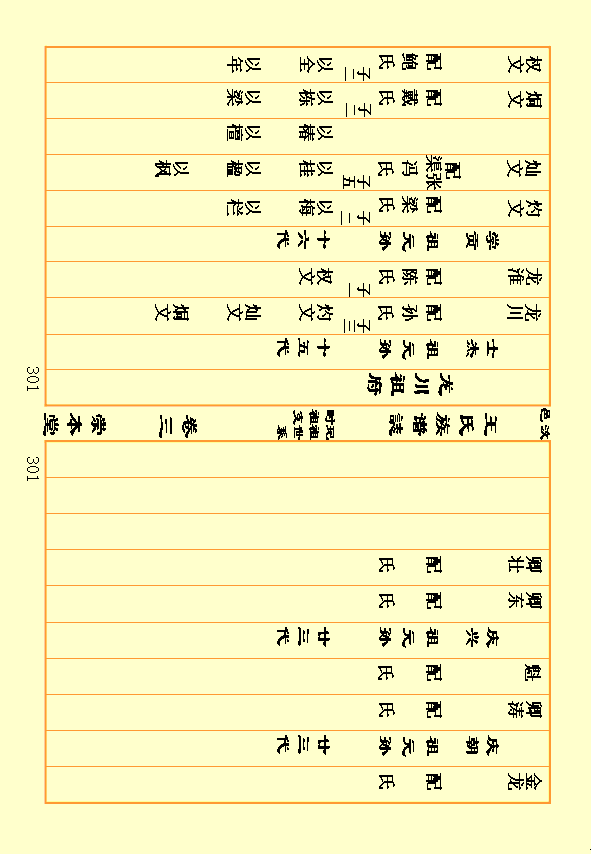 金龙 配 氏
庆朝祖元孙 廿三代
卿涛 配 氏
魁 配 氏
庆兴祖元孙 廿三代
卿东 配 氏
卿壮 配 氏
301
汶邑 王氏族譜誌 卷三 崇本堂
301
龙川祖府
士杰祖元孙 十五代
龙川 配孙氏 子三 灼文 灿文 炯文
龙淮 配陈氏 子一 权文
学贡祖元孙 十六代
灼文 配梁氏 子二 以梅 以栏
灿文 配渠张冯氏 子五 以桂 以榴 以枫
以椿 以檀
炯文 配戴氏 子二 以栋 以梁
权文 配鲍氏 子二 以全 以年